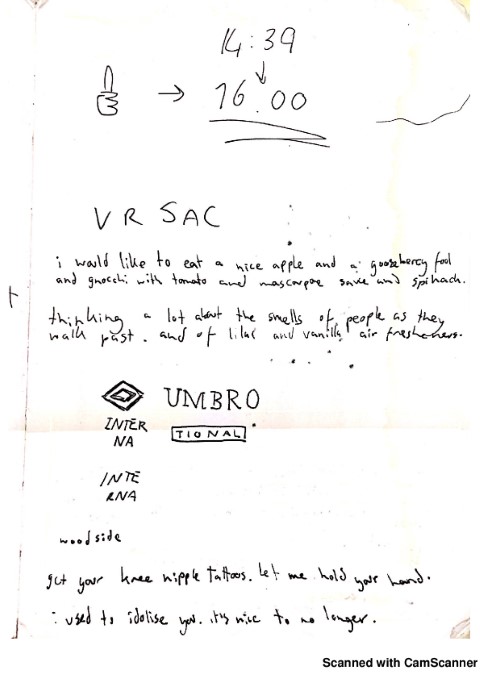 14:39
16.00
VR SAC
i would like to eat a nice apple and a gooseberry fool
and gnocchi with tomato and mascarpoe sauce and spinach.
thinking a lot about the smells of people as they
walk past. and of lilac and vanilla air fresheners.
UMBRO
INTER
NA
TIONAL
INTE
RNA
woodside
get your knee nipple tattoos. let me hold your hand.
i used to idolise you. it's nice to no longer.
Scanned with CamScanner